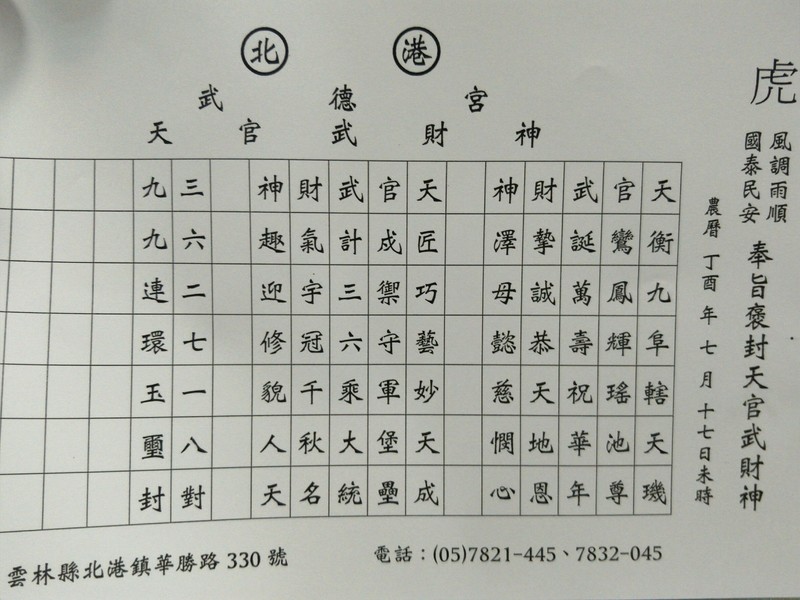 北港
武德宮
天官武財神
虎
風調雨順
國泰民安
奉旨褒封天官武財神
農曆丁酉年七月十七日未時
天衡九阜轄天璣
官鸞鳳輝瑤池尊
武誕萬壽祝華年
財摯誠恭天地恩
神澤母懿慈憫心
天匠巧藝妙天成
官戍禦守軍堡壘
武計三六乘大統
財氣宇冠千秋名
神趣迎修貌人天
三六二七一八對
九九連環玉璽封
雲林縣北港鎮華勝路330號
電話：(05)7821-445、7832-045